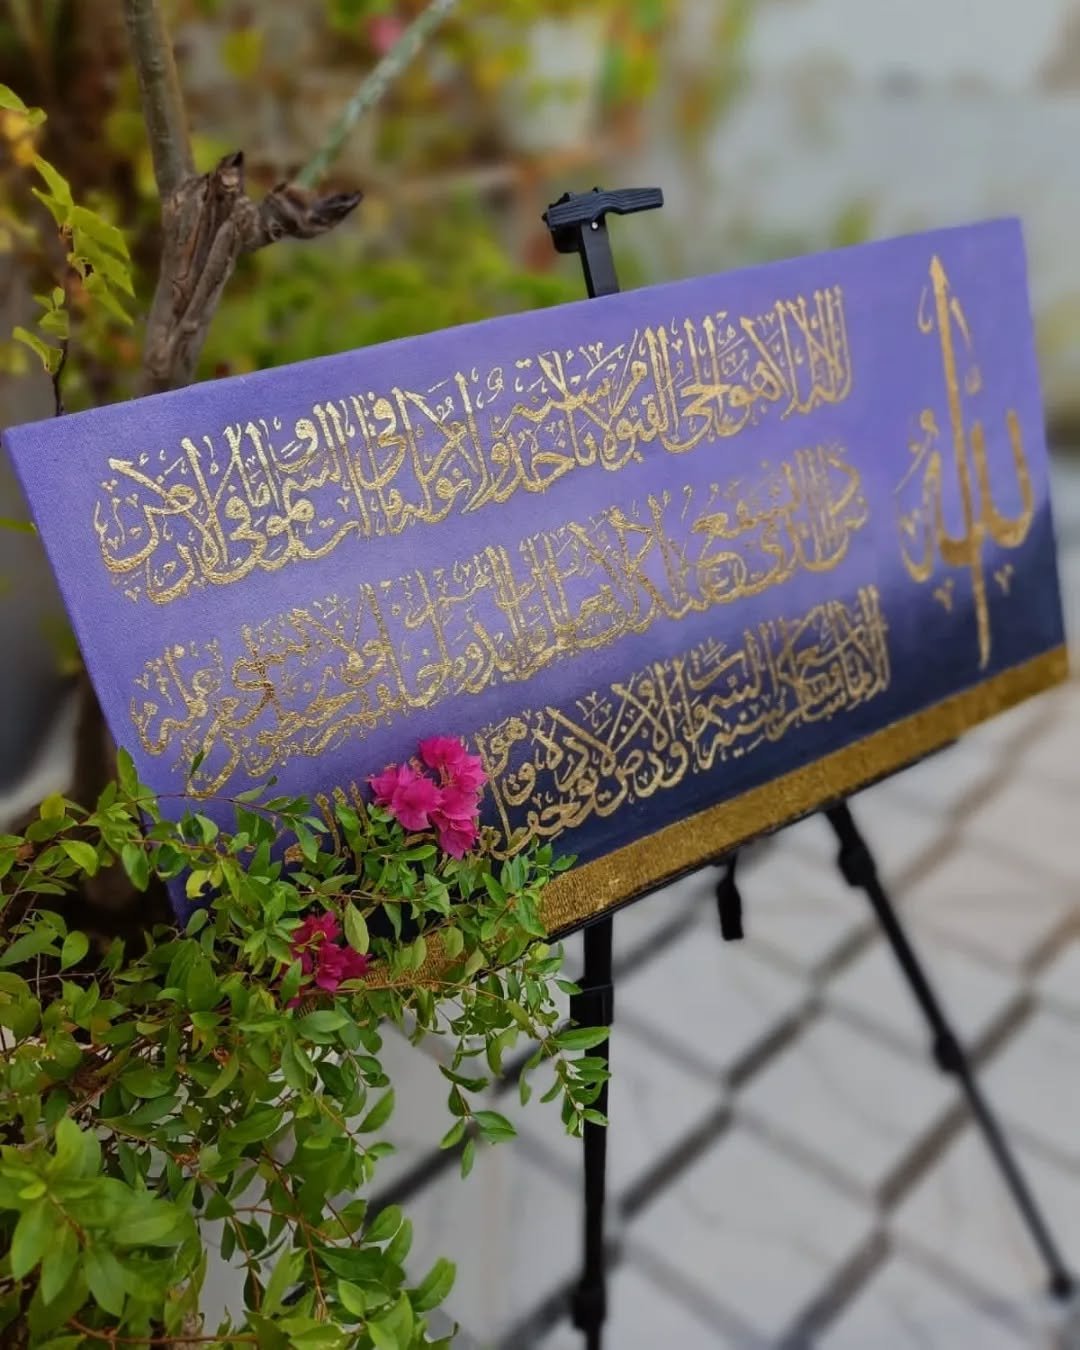 الله
لا إله إلا هو الحي القيوم لا تأخذه سنة ولا نوم له ما في السموات وما في الأرض
من ذا الذي يشفع عنده إلا بإذنه يعلم ما بين أيديهم وما خلفهم ولا يحيطون بشيء من علمه
إلا بما شاء وسع كرسيه السموات والأرض ولا يؤده حفظهما وهو